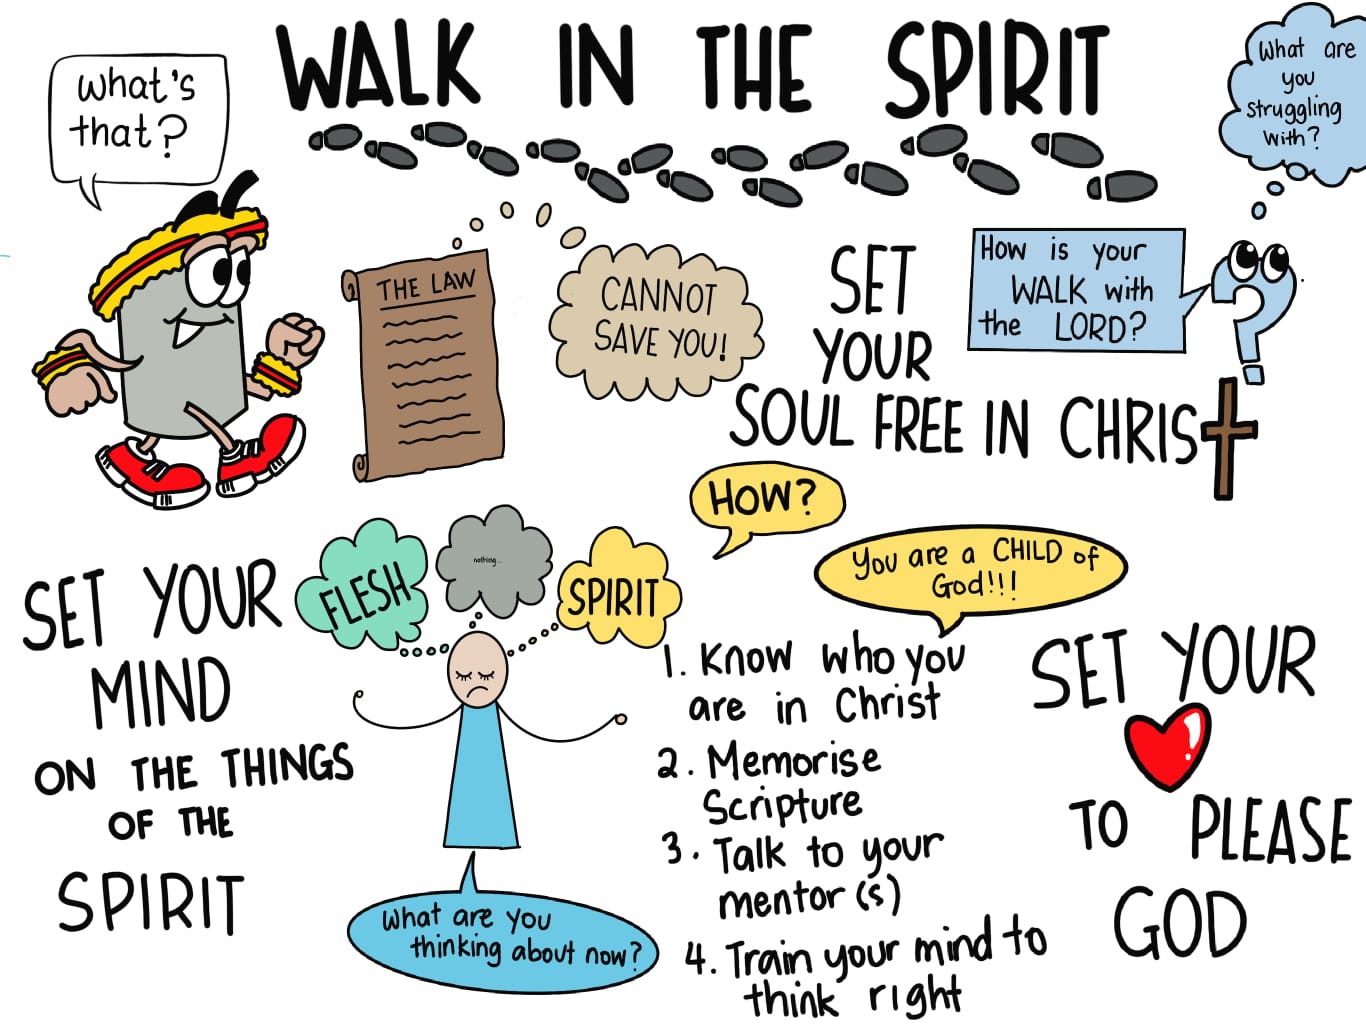 WALK IN THE SPIRIT
What's
that?
What are
you
struggling
with?
THE LAW
CANNOT
SAVE YOU!
SET
YOUR
SOUL FREE IN CHRIS
How is your
WALK with
the LORD?
SET YOUR
MIND
ON THE THINGS
OF THE
SPIRIT
FLESH
nothing...
SPIRIT
What are you
thinking about now?
HOW?
You are a CHILD of
God!!!
1. Know who you
are in Christ
2. Memorise
Scripture
3. Talk to your
mentor(s)
4. Train your mind to
think right
SET YOUR
TO PLEASE
GOD